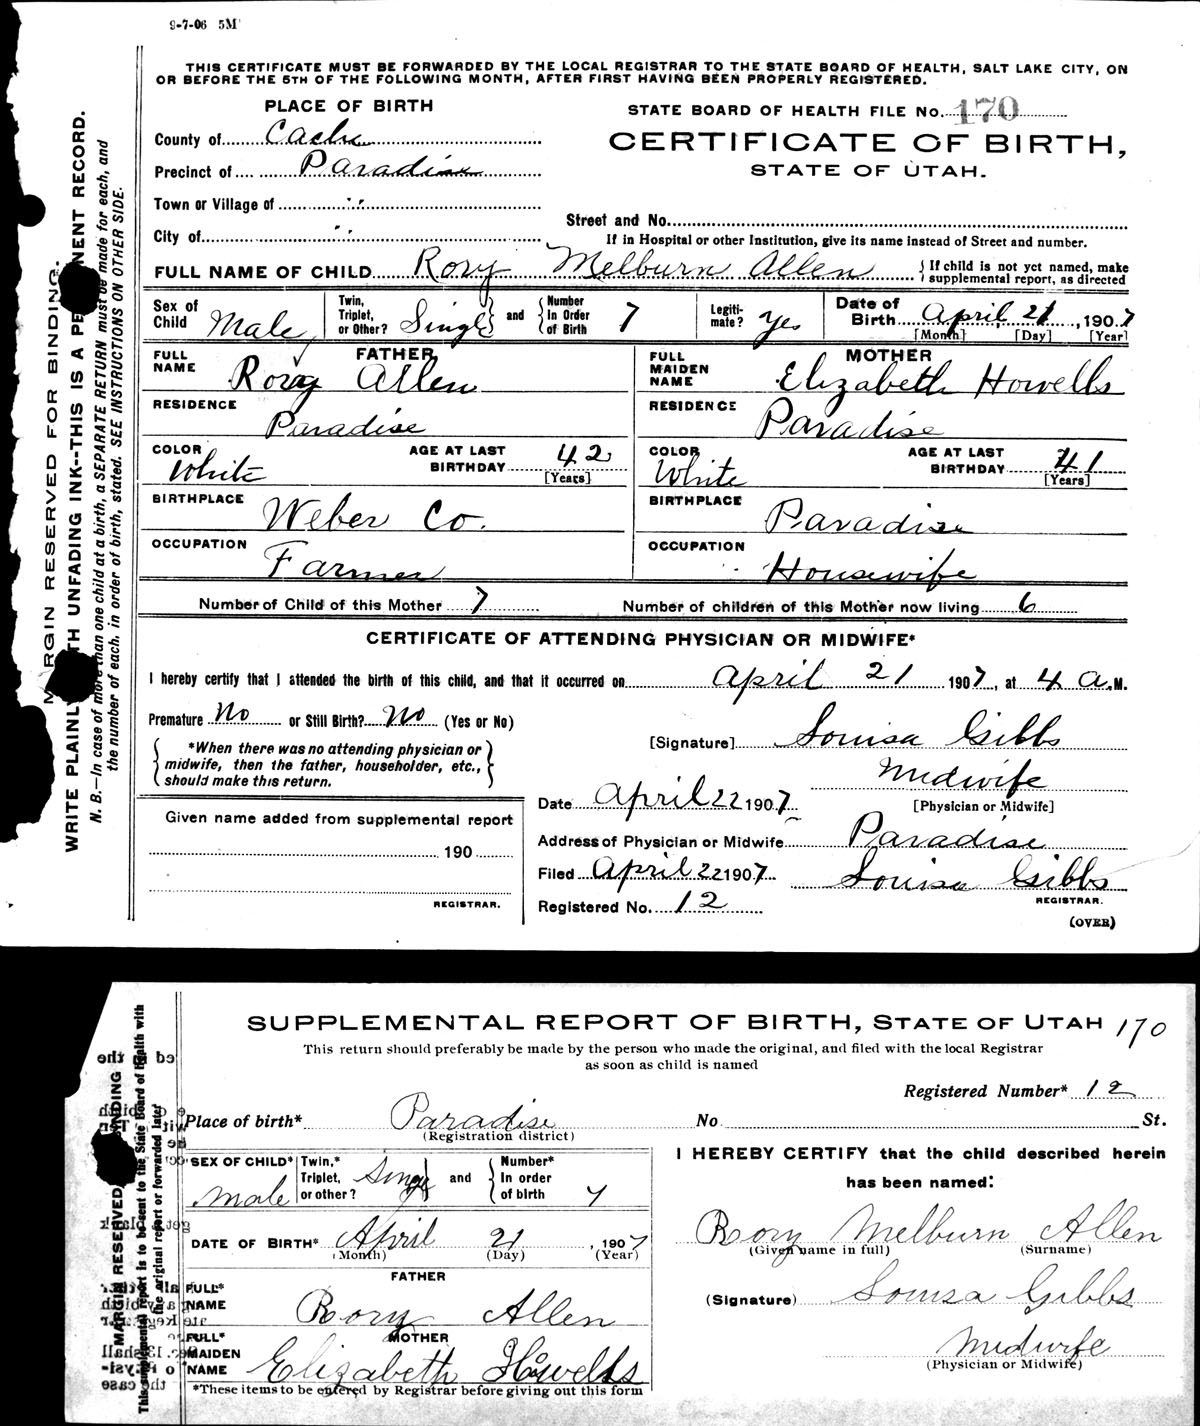 9-7-06 5M
THIS CERTIFICATE MUST BE FORWARDED BY THE LOCAL REGISTRAR TO THE STATE BOARD OF HEALTH, SALT LAKE CITY, ON
OR BEFORE THE 5TH OF THE FOLLOWING MONTH, AFTER FIRST HAVING BEEN PROPERLY REGISTERED.
PLACE OF BIRTH
STATE BOARD OF HEALTH FILE No. 170
County of Cache
CERTIFICATE OF BIRTH,
Precinct of Paradise
STATE OF UTAH.
Town or Village of "
Street and No.
City of "
If in Hospital or other Institution, give its name instead of Street and number.
FULL NAME OF CHILD Rory Melburn Allen { If child is not yet named, make supplemental report, as directed
Sex of Child Male Twin, Triplet, or Other? Single and Number In Order of Birth 7 Legiti-mate? Yes Date of Birth April 21, 1907
[Month] [Day] [Year]
FATHER
MOTHER
FULL NAME Rory Allen
FULL MAIDEN NAME Elizabeth Howells
RESIDENCE Paradise
RESIDENCE Paradise
COLOR White AGE AT LAST BIRTHDAY 42 [Years]
COLOR White AGE AT LAST BIRTHDAY 41 [Years]
BIRTHPLACE Weber Co.
BIRTHPLACE Paradise
OCCUPATION Farmer
OCCUPATION Housewife
Number of Child of this Mother 7 Number of children of this Mother now living 6
CERTIFICATE OF ATTENDING PHYSICIAN OR MIDWIFE*
I hereby certify that I attended the birth of this child, and that it occurred on April 21 1907, at 4 A.M.
Premature No or Still Birth? No (Yes or No)
[Signature] Louisa Gibbs
*When there was no attending physician or
midwife, then the father, householder, etc.,
should make this return.
Midwife
[Physician or Midwife]
Date April 22 1907
Given name added from supplemental report
190
REGISTRAR.
Address of Physician or Midwife Paradise
Filed April 22 1907 Louisa Gibbs
REGISTRAR.
Registered No. 12
(OVER)
MARGIN RESERVED FOR BINDING.
WRITE PLAINLY WITH UNFADING INK--THIS IS A PERMANENT RECORD.
N. B.—In case of more than one child at a birth, a SEPARATE RETURN must be made for each, and
the number of each, in order of birth, stated. SEE INSTRUCTIONS ON OTHER SIDE.
SUPPLEMENTAL REPORT OF BIRTH, STATE OF UTAH 170
This return should preferably be made by the person who made the original, and filed with the local Registrar
as soon as child is named
Registered Number* 12
Place of birth* Paradise No. St.
(Registration district)
SEX OF CHILD* Male Twin,* Triplet, or other? Single and Number* In order of birth 7
I HEREBY CERTIFY that the child described herein
has been named:
DATE OF BIRTH* April 21, 1907
(Month) (Day) (Year)
Rory Melburn Allen
(Given name in full) (Surname)
FATHER
FULL* NAME Rory Allen
(Signature) Louisa Gibbs
MOTHER
FULL* MAIDEN NAME Elizabeth Howells
Midwife
(Physician or Midwife)
*These items to be entered by Registrar before giving out this form
MARGIN RESERVED
This supplemental report is to be sent to the State Board of Health with
the original report or forwarded later